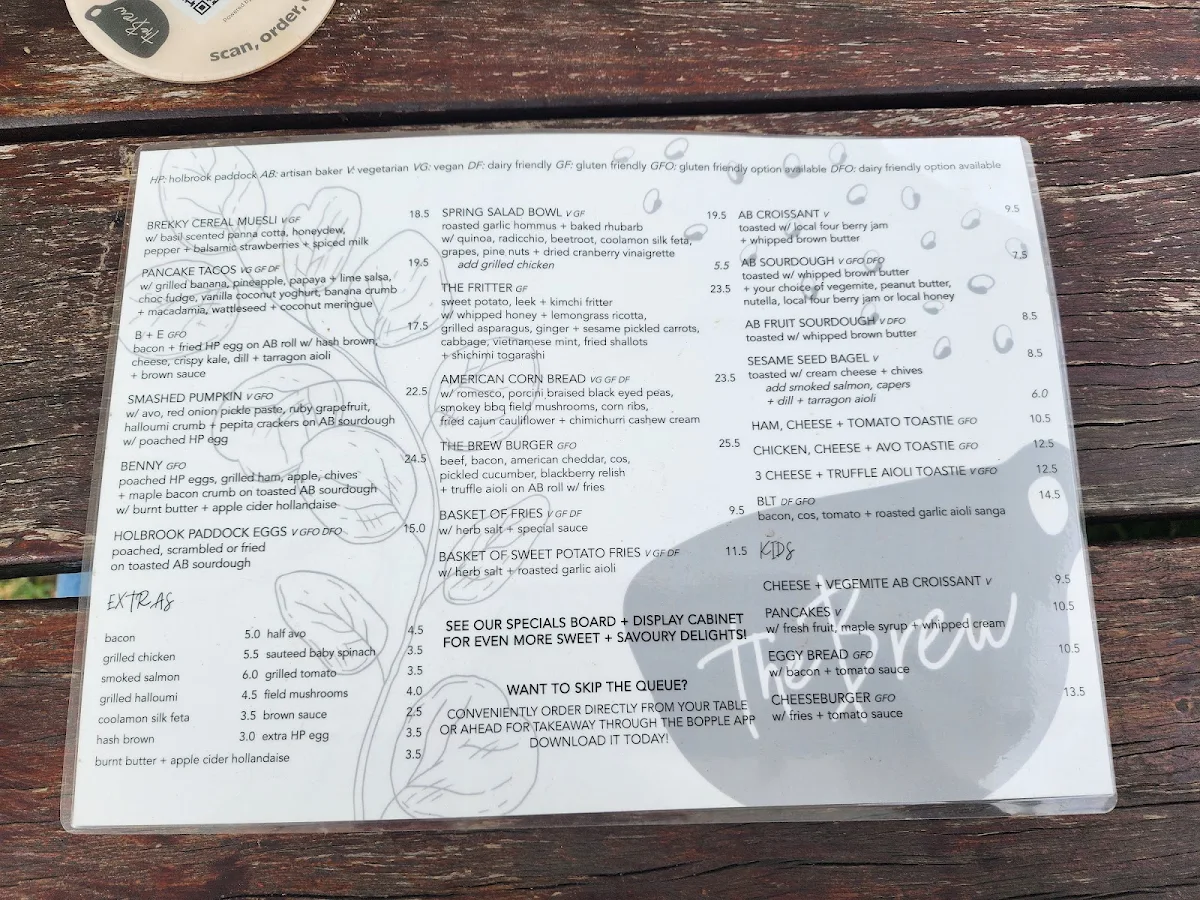 The Brew
Powered by
scan, order,
HP: holbrook paddock AB: artisan baker V: vegetarian VG: vegan DF: dairy friendly GF: gluten friendly GFO: gluten friendly option available DFO: dairy friendly option available
BREKKY CEREAL MUESLI V GF 18.5
w/ basil scented panna cotta, honeydew,
pepper + balsamic strawberries + spiced milk
PANCAKE TACOS VG GF DF 19.5
w/ grilled banana, pineapple, papaya + lime salsa,
choc fudge, vanilla coconut yoghurt, banana crumb
+ macadamia, wattleseed + coconut meringue
B + E GFO 17.5
bacon + fried HP egg on AB roll w/ hash brown,
cheese, crispy kale, dill + tarragon aioli
+ brown sauce
SMASHED PUMPKIN V GFO 22.5
w/ avo, red onion pickle paste, ruby grapefruit,
halloumi crumb + pepita crackers on AB sourdough
w/ poached HP egg
BENNY GFO 24.5
poached HP eggs, grilled ham, apple, chives
+ maple bacon crumb on toasted AB sourdough
w/ burnt butter + apple cider hollandaise
HOLBROOK PADDOCK EGGS V GFO DFO 15.0
poached, scrambled or fried
on toasted AB sourdough
EXTRAS
bacon 5.0 half avo 4.5
grilled chicken 5.5 sauteed baby spinach 3.5
smoked salmon 6.0 grilled tomato 3.5
grilled halloumi 4.5 field mushrooms 4.0
coolamon silk feta 3.5 brown sauce 2.5
hash brown 3.0 extra HP egg 3.5
burnt butter + apple cider hollandaise 3.5
SPRING SALAD BOWL V GF 19.5
roasted garlic hommus + baked rhubarb
w/ quinoa, radicchio, beetroot, coolamon silk feta,
grapes, pine nuts + dried cranberry vinaigrette
add grilled chicken 5.5
THE FRITTER GF 23.5
sweet potato, leek + kimchi fritter
w/ whipped honey + lemongrass ricotta,
grilled asparagus, ginger + sesame pickled carrots,
cabbage, vietnamese mint, fried shallots
+ shichimi togarashi
AMERICAN CORN BREAD VG GF DF 23.5
w/ romesco, porcini braised black eyed peas,
smokey bbq field mushrooms, corn ribs,
fried cajun cauliflower + chimichurri cashew cream
THE BREW BURGER GFO 25.5
beef, bacon, american cheddar, cos,
pickled cucumber, blackberry relish
+ truffle aioli on AB roll w/ fries
BASKET OF FRIES V GF DF 9.5
w/ herb salt + special sauce
BASKET OF SWEET POTATO FRIES V GF DF 11.5
w/ herb salt + roasted garlic aioli
SEE OUR SPECIALS BOARD + DISPLAY CABINET
FOR EVEN MORE SWEET + SAVOURY DELIGHTS!
WANT TO SKIP THE QUEUE?
CONVENIENTLY ORDER DIRECTLY FROM YOUR TABLE
OR AHEAD FOR TAKEAWAY THROUGH THE BOPPLE APP
DOWNLOAD IT TODAY!
AB CROISSANT V 9.5
toasted w/ local four berry jam
+ whipped brown butter
AB SOURDOUGH V GFO DFO 7.5
toasted w/ whipped brown butter
+ your choice of vegemite, peanut butter,
nutella, local four berry jam or local honey
AB FRUIT SOURDOUGH V DFO 8.5
toasted w/ whipped brown butter
SESAME SEED BAGEL V 8.5
toasted w/ cream cheese + chives
add smoked salmon, capers 6.0
+ dill + tarragon aioli
HAM, CHEESE + TOMATO TOASTIE GFO 10.5
CHICKEN, CHEESE + AVO TOASTIE GFO 12.5
3 CHEESE + TRUFFLE AIOLI TOASTIE V GFO 12.5
BLT DF GFO 14.5
bacon, cos, tomato + roasted garlic aioli sanga
KIDS
CHEESE + VEGEMITE AB CROISSANT V 9.5
PANCAKES V 10.5
w/ fresh fruit, maple syrup + whipped cream
EGGY BREAD GFO 10.5
w/ bacon + tomato sauce
CHEESEBURGER GFO 13.5
w/ fries + tomato sauce
The Brew